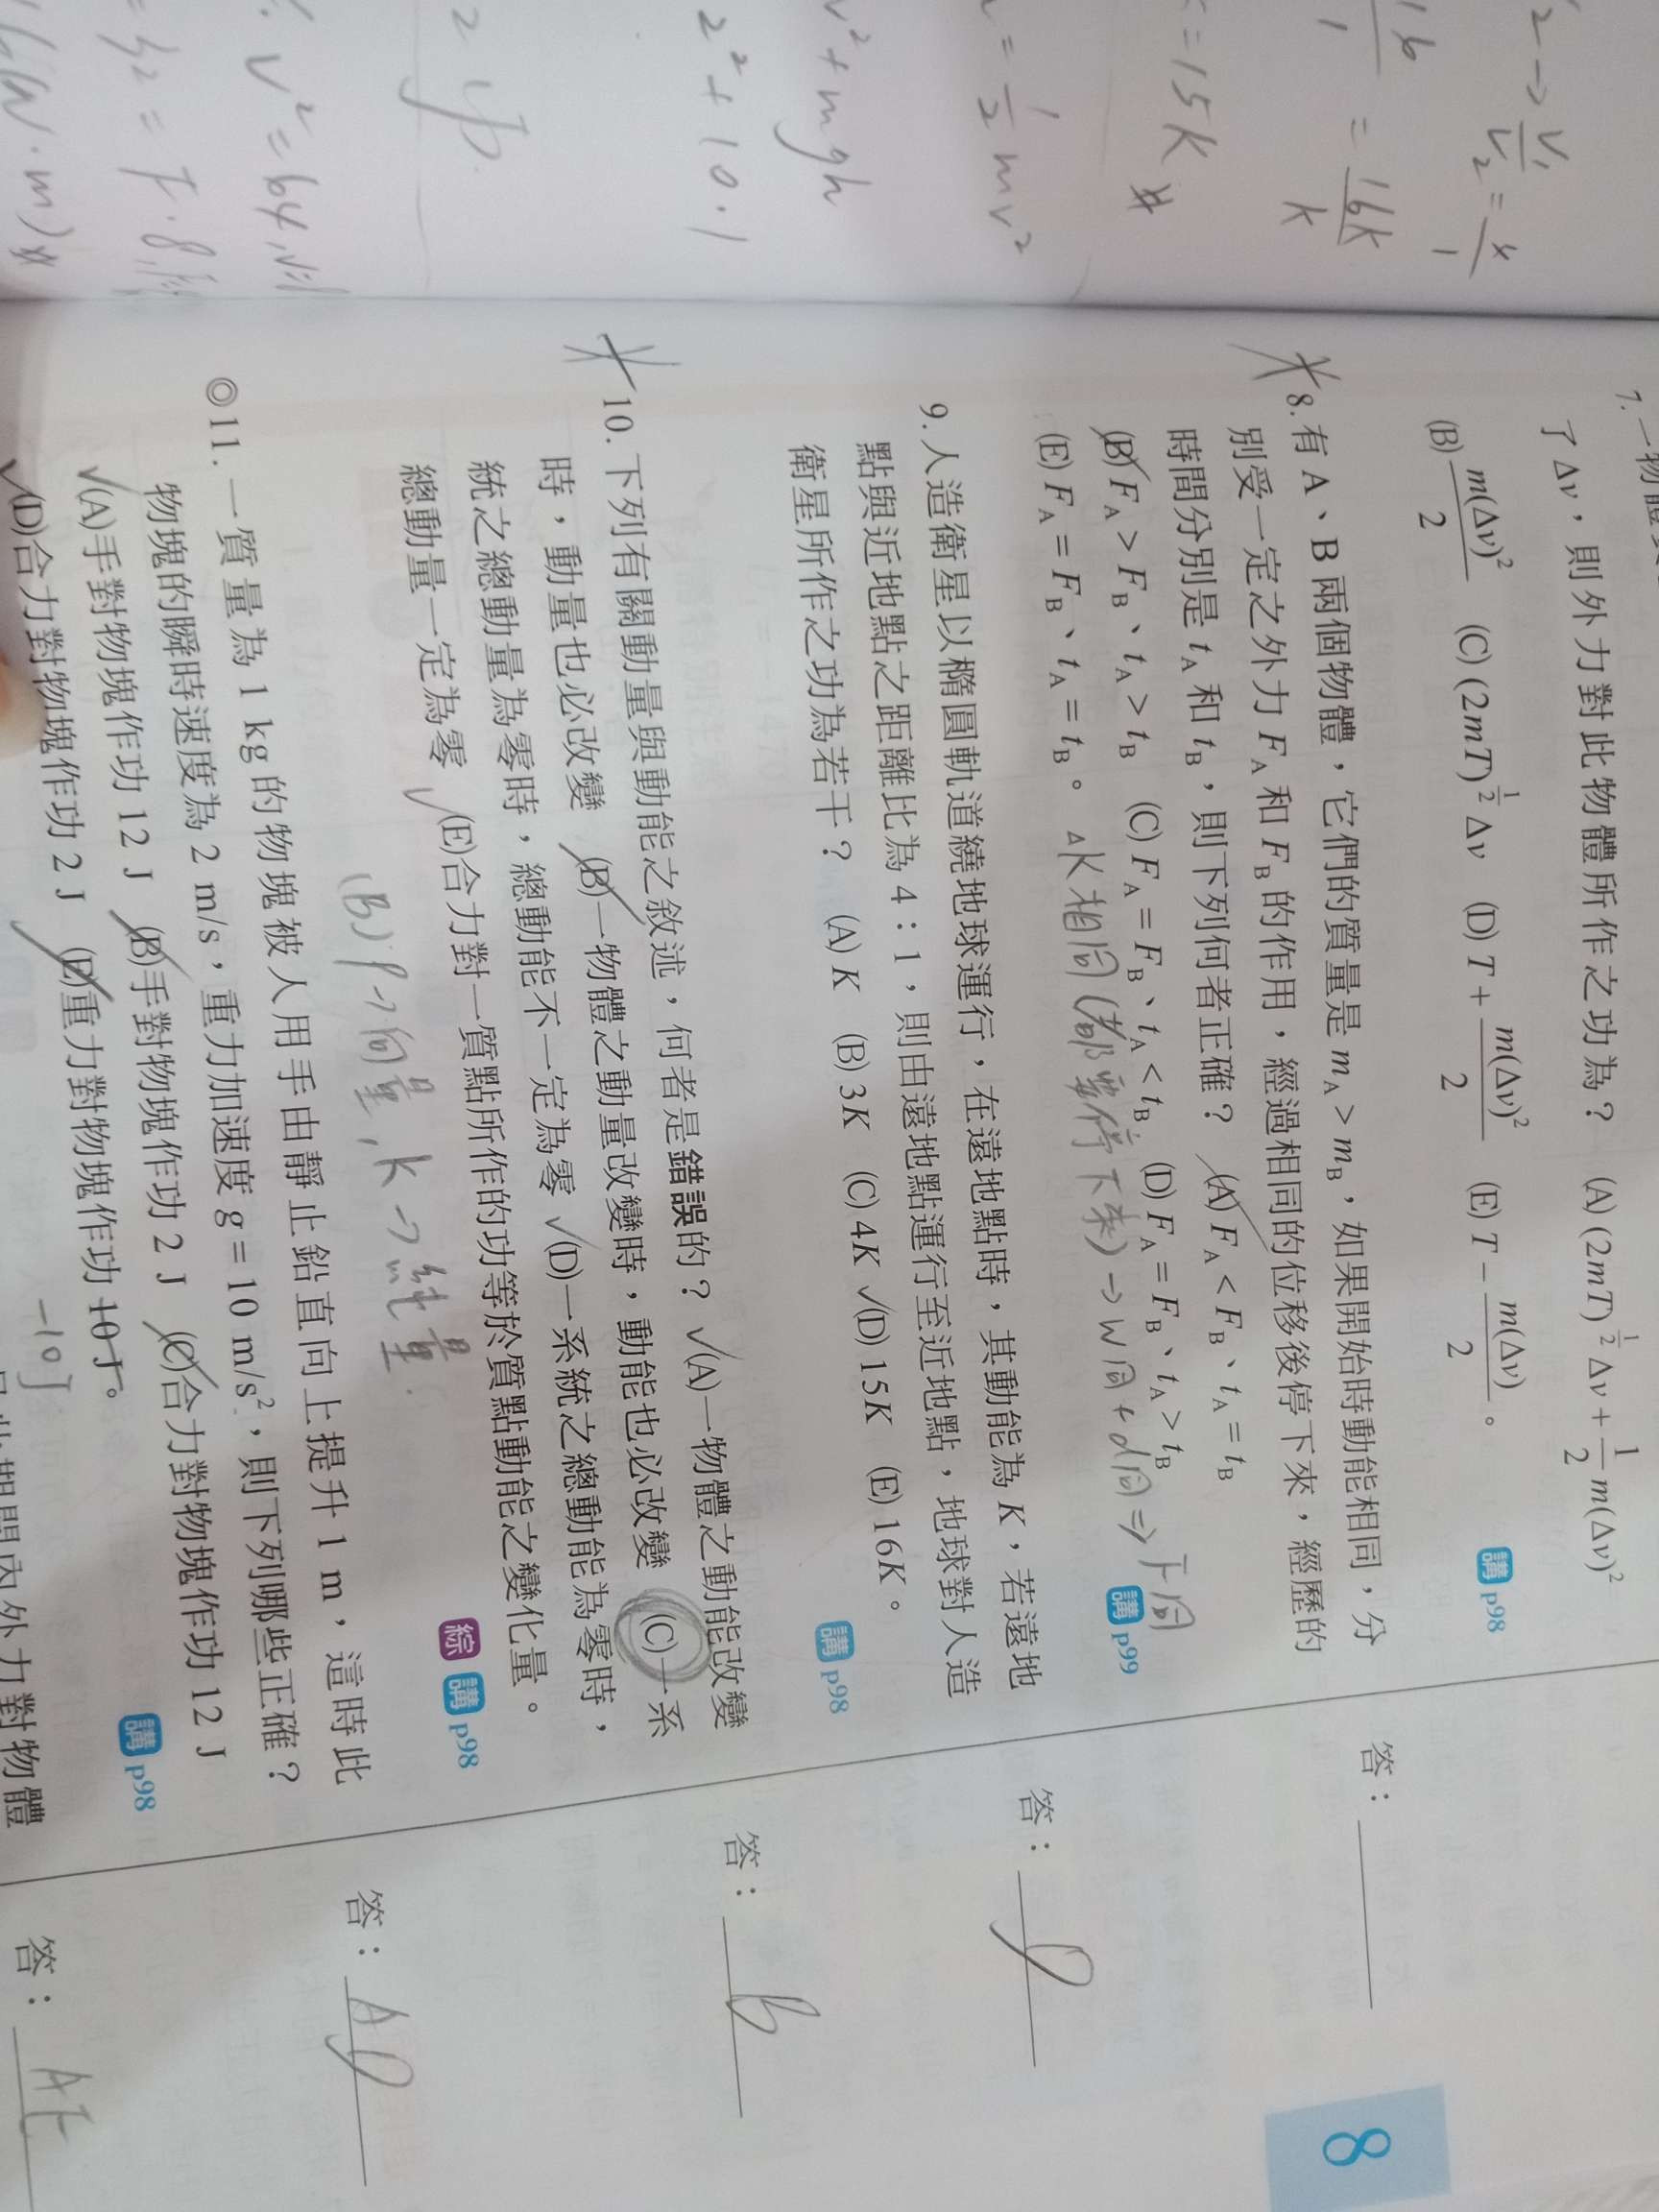 2→ V₁/V₂ = 4/1
16/1 = 16K/K
= 15K #
= 1/2 mv²
v² + mgh
2² + 10·1
v² = 64
= F·8
(N·m) #
7.一物體
了 Δv，則外力對此物體所作之功為？ (A) (2mT)^{1/2} Δv + 1/2 m(Δv)²
(B) m(Δv)²/2 (C) (2mT)^{1/2} Δv (D) T + m(Δv)²/2 (E) T − m(Δv)/2 。
講 p98
8.有 A、B 兩個物體，它們的質量是 m_A > m_B，如果開始時動能相同，分
別受一定之外力 F_A 和 F_B 的作用，經過相同的位移後停下來，經歷的
時間分別是 t_A 和 t_B，則下列何者正確？ (A) F_A < F_B、t_A = t_B
(B) F_A > F_B、t_A > t_B (C) F_A = F_B、t_A < t_B (D) F_A = F_B、t_A > t_B
(E) F_A = F_B、t_A = t_B。
ΔK相同(都要停下來)→W同+d同⇒F同
講 p99
答：
9.人造衛星以橢圓軌道繞地球運行，在遠地點時，其動能為 K，若遠地
點與近地點之距離比為 4：1，則由遠地點運行至近地點，地球對人造
衛星所作之功為若干？ (A) K (B) 3K (C) 4K √(D) 15K (E) 16K。
講 p98
答：D
10.下列有關動量與動能之敘述，何者是錯誤的？ √(A)一物體之動能改變
時，動量也必改變 (B)一物體之動量改變時，動能也必改變 (C)一系
統之總動量為零時，總動能不一定為零 √(D)一系統之總動能為零時，
總動量一定為零 √(E)合力對一質點所作的功等於質點動能之變化量。
綜 講 p98
(B) P→向量，K→純量.
答：B
◎11.一質量為 1 kg 的物塊被人用手由靜止鉛直向上提升 1 m，這時此
物塊的瞬時速度為 2 m/s，重力加速度 g = 10 m/s²，則下列哪些正確？
√(A)手對物塊作功 12 J (B)手對物塊作功 2 J (C)合力對物塊作功 12 J
√(D)合力對物塊作功 2 J (E)重力對物塊作功 10 J。
-10J
講 p98
答：AD
期間內外力對物體
答：AE
8